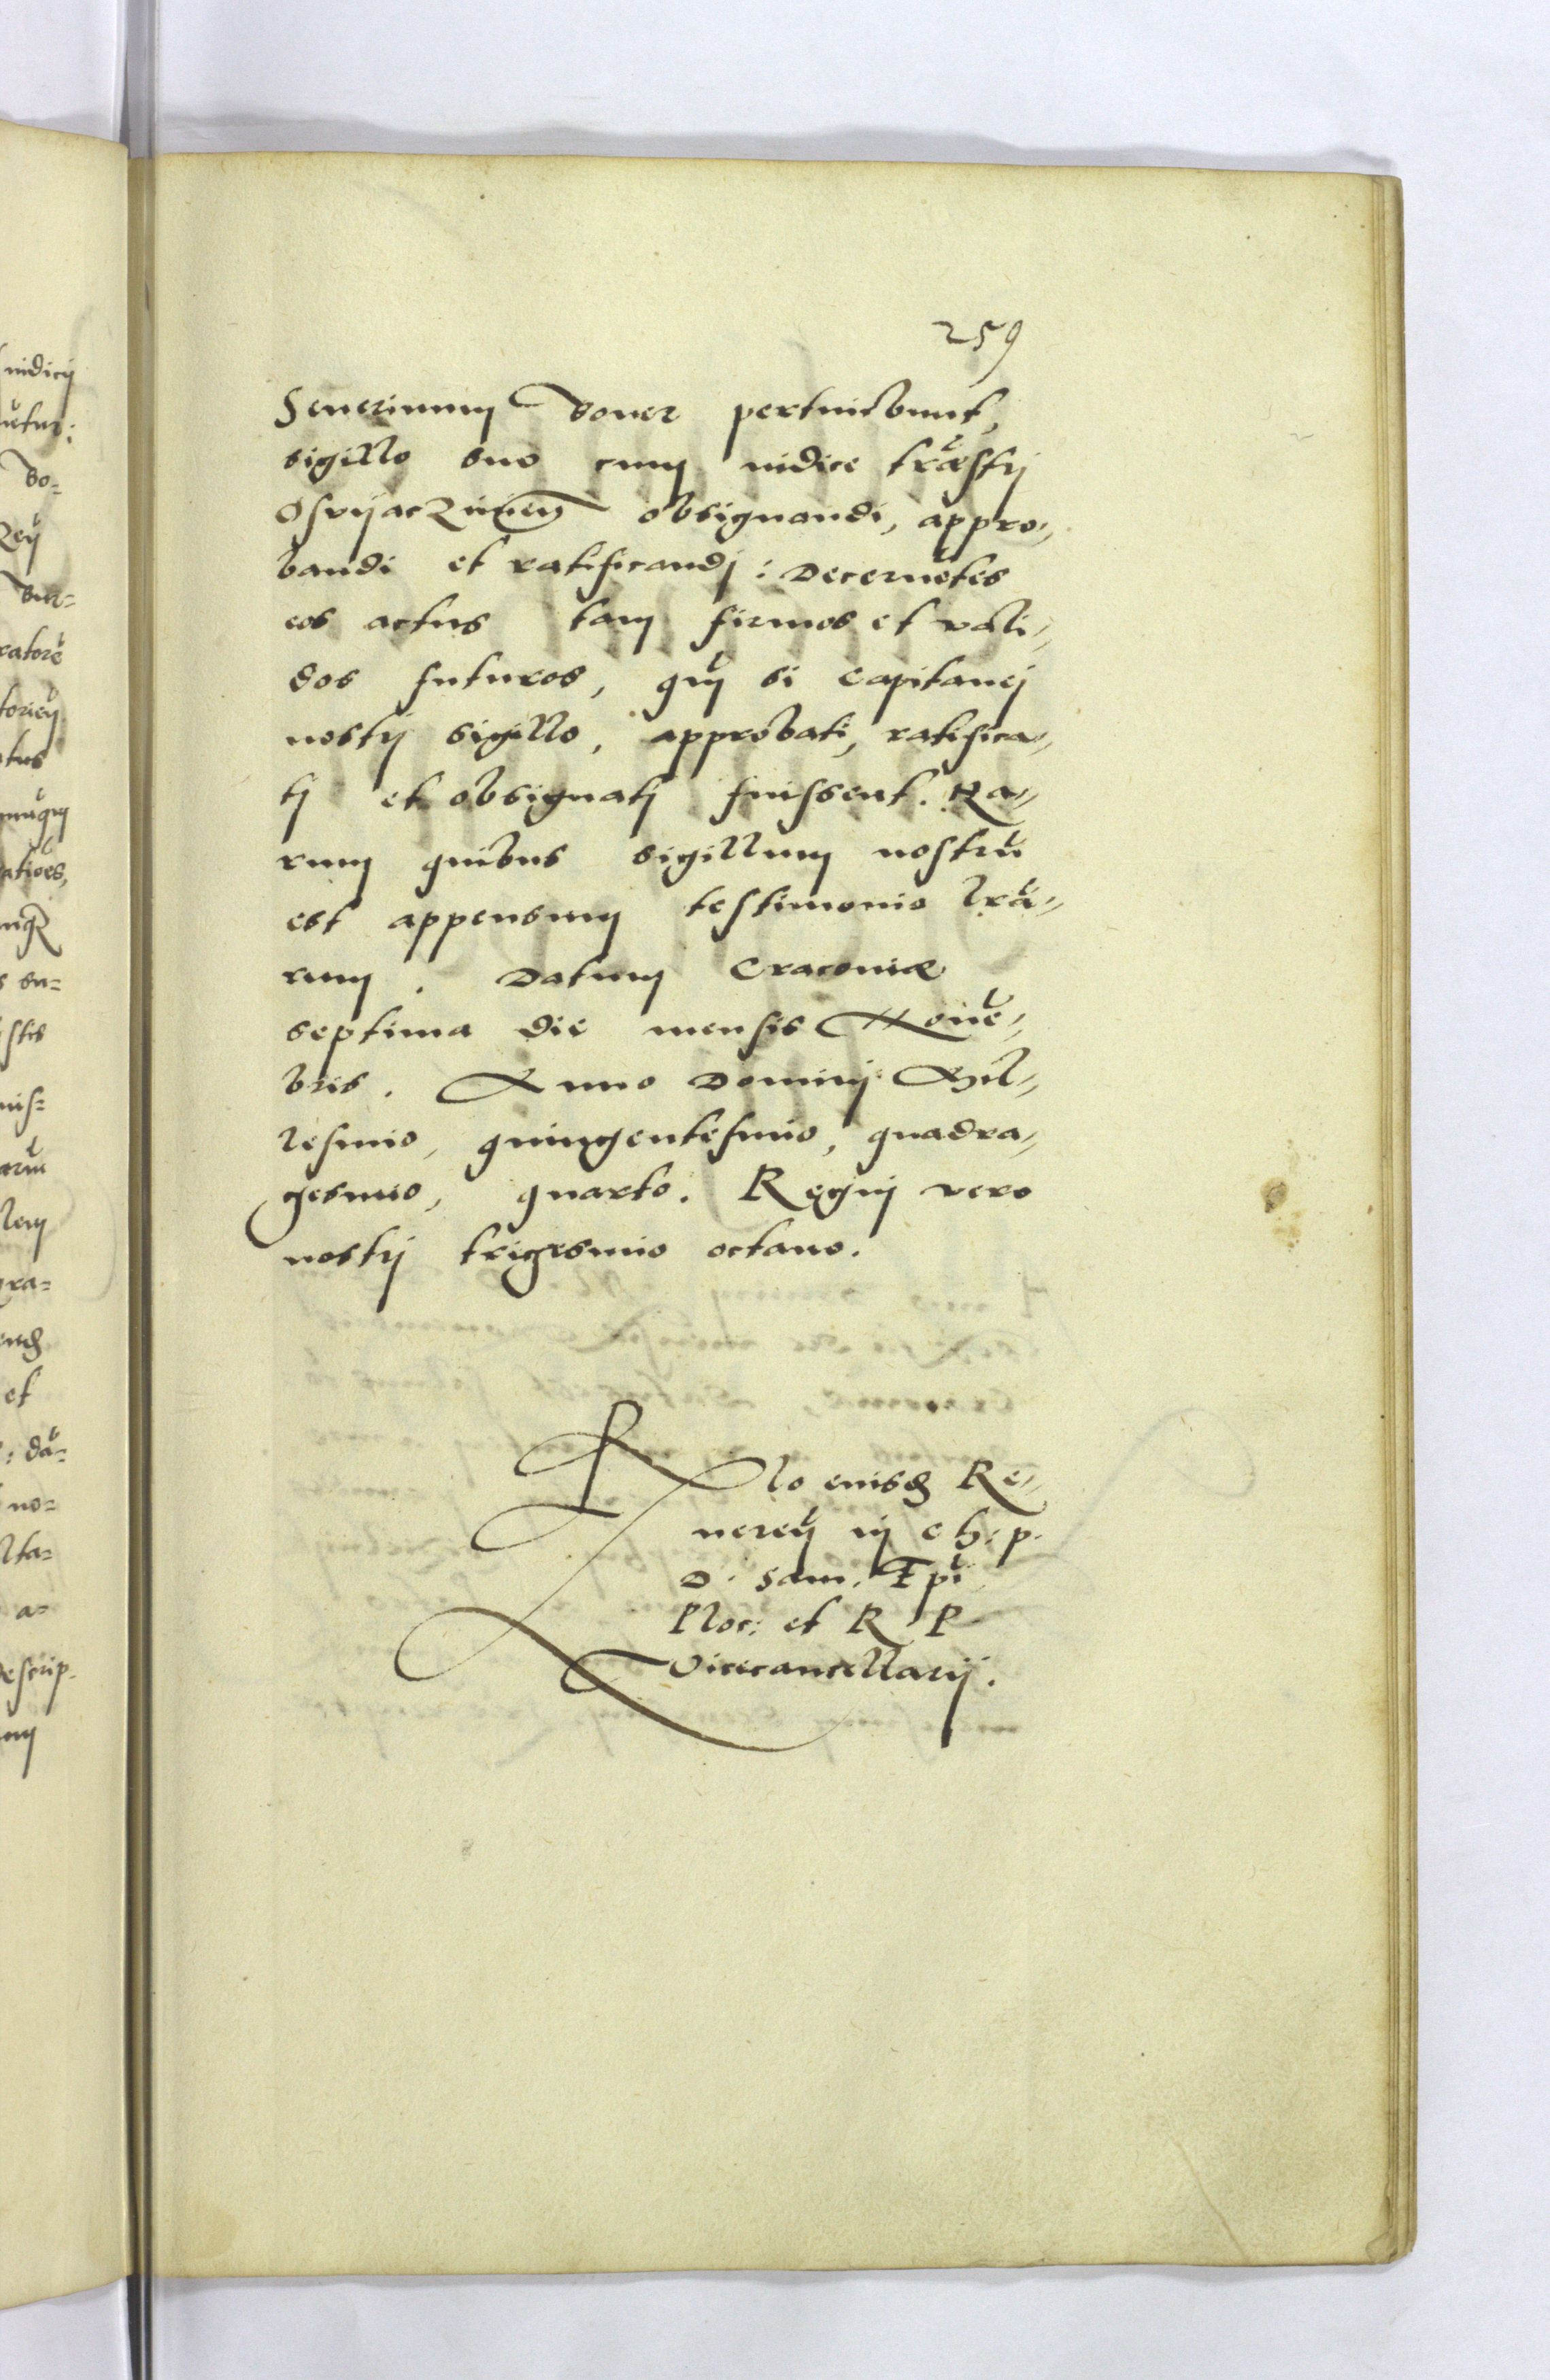 259
Seuerinum Boner pertinebunt,
sigillo suo cum iudice trr̃stri
Osvijacziimen̄ obsignandi, appro„
bandi et ratificandj: Decernẽtes
eos actus tam firmos et vali„
dos futuros, quĩ si Capitanej
nostrj sigillo, approbati, ratifica„
tj et obsignatj fuissent. Ha„
rum quibus sigillum nostrũ
est appensum testimonio lrã„
rum. Datum Cracoviæ
septima die mensis Nouẽ„
bris. Anno Dominj Mil„
lesimo, quingentesimo, quadra„
gesimo, quarto. Regnj vero
nostrj trigesimo octauo.
Rlo eiusdẽ Re„
uereñ in C h: p.
D. Sam. Epĩ
Ploc: et R P
Vicecancellarij.